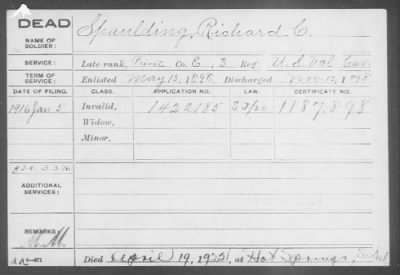 DEAD
NAME OF SOLDIER: Spaulding, Richard C.
SERVICE: Late rank, Co. E, 3 Reg U.S Vol Cav.
TERM OF SERVICE: Enlisted May 13, 1898, Discharged 1898
DATE OF FILING. CLASS. APPLICATION NO. LAW CERTIFICATE NO.
1916 Jan 5 Invalid, 1422185 1187.898
Widow,
Minor,
ADDITIONAL SERVICES:
REMARKS:
Died April 19, 1922, at Hot Springs,